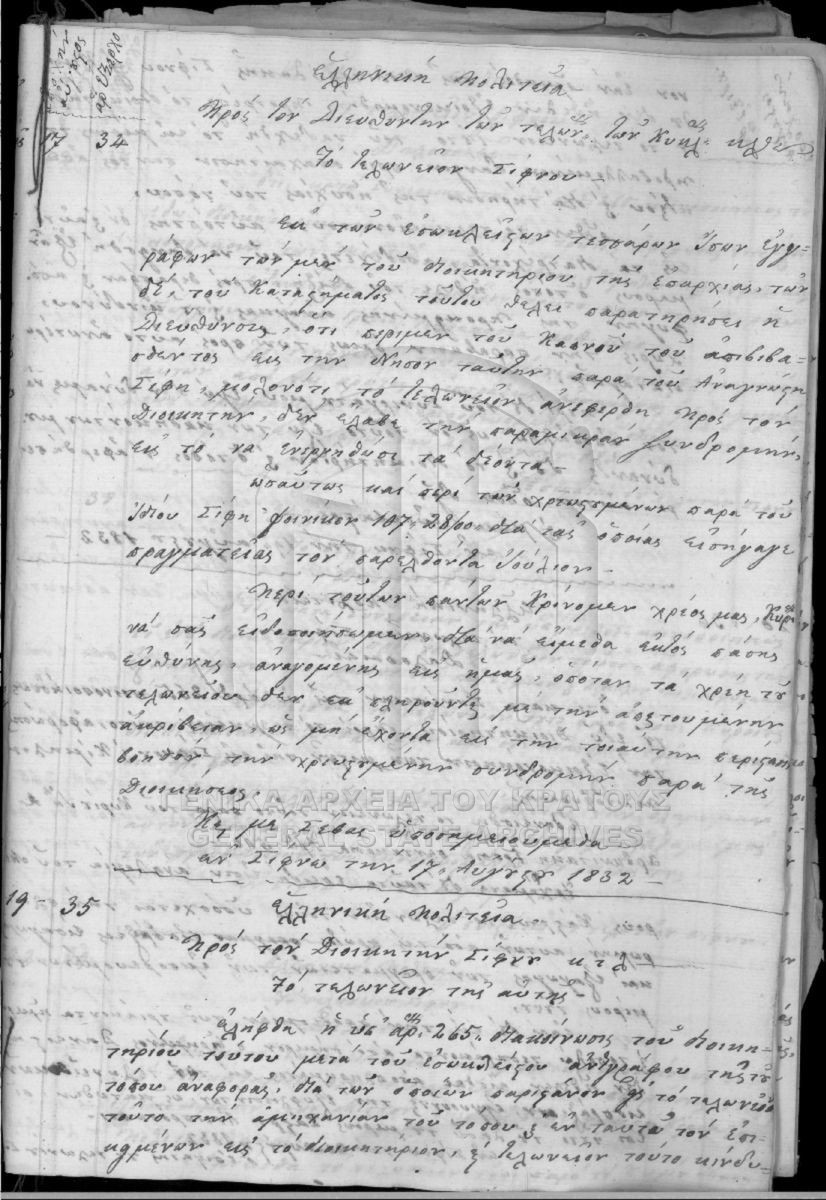 17 34
Ἑλληνική Πολιτεία
Πρός τόν Διευθυντήν τῶν τελων. τῶν Κυκλ.
Τό Τελωνεῖον Σίφνου
Ἐκ τῶν ἐσωκλείστων τεσσάρων ἴσων ἐγγ-
ράφων τῶν μέν τοῦ Διοικητηρίου τῆς Ἐπαρχίας, τῶν
δέ, τοῦ Καταστήματος τούτου θέλει παρατηρήσει ἡ
Διεύθυνσις, ὅτι περί μέν τοῦ Καπνοῦ τοῦ ἀποβιβα-
σθέντος εἰς τήν Νῆσον ταύτην παρά τοῦ Ἀναγνώστη
Σίφη, μολονότι τό Τελωνεῖον ἀνεφέρθη πρός τόν
Διοικητήν, δέν ἔλαβε τήν παραμικράν συνδρομήν,
εἰς τό νά ἐνεργηθῶσι τά δέοντα.
ὡσαύτως καί περί τῶν χρεωστουμένων παρά τοῦ
ἰδίου Σίφη φοινίκων 107:28/00 διά τάς ὁποίας εἰσήγαγε
πραγματείας τόν παρελθόντα Ἰούλιον.
Περί τούτων πάντων κρίνομεν χρέος μας,
νά σᾶς εἰδοποιήσωμεν διά νά εἴμεθα ἐκτός πάσης
εὐθύνης, ἀναγομένης εἰς ἡμᾶς, ὁπόταν τά χρέη τοῦ
τελωνείου δέν ἐκπληροῦνται μέ τήν ἀπαιτουμένην
ἀκρίβειαν, ὡς μή ἔχοντα εἰς τήν τοιαύτην περίστασιν
βοηθόν τήν χρεωστουμένην συνδρομήν παρά τῆς
Διοικήσεως.
Καί μέ Σέβας ὑποσημειούμεθα
ἐν Σίφνῳ τήν 17 Αὐγούστου 1832
19 - 35
Ἑλληνική Πολιτεία.
Πρός τόν Διοικητήν Σίφνου κ τ λ
Τό τελωνεῖον τῆς αὐτῆς
Ἐλήφθη ἡ ὑπ' ἀρ. 265. διακοίνωσις τοῦ Διοικη-
τηρίου τούτου μετά τοῦ ἐσωκλείστου ἀντιγράφου τῆς τοῦ
τόπου ἀναφορᾶς, διά τῶν ὁποίων τό τελωνεῖον
τοῦτο τήν ἀμηχανίαν τοῦ τόπου
εἰς τό Διοικητήριον, Τελωνεῖον τοῦτο κινδυ-
ΓΕΝΙΚΑ ΑΡΧΕΙΑ ΤΟΥ ΚΡΑΤΟΥΣ
GENERAL STATE ARCHIVES